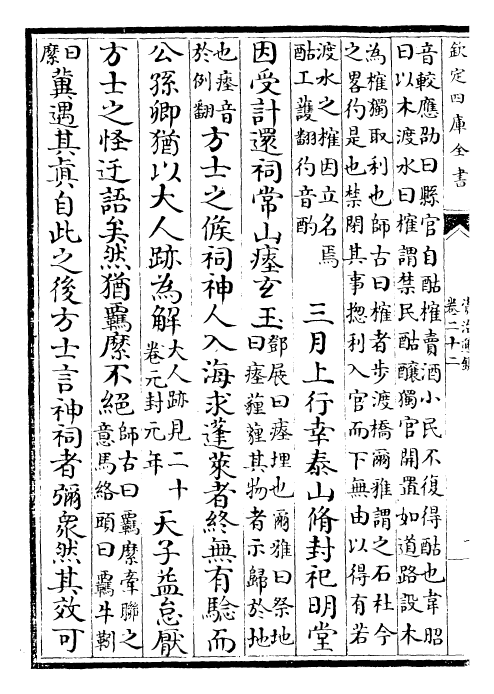 欽定四庫全書
資治通鑑
卷二十二
音較應劭曰縣官自酤榷賣酒小民不復得酤也韋昭
曰以木渡水曰榷謂禁民酤釀獨官開置如道路設木
為榷獨取利也師古曰榷者步渡橋爾雅謂之石杜今
之畧彴是也禁閉其事揔利入官而下無由以得有若
渡水之榷因立名焉
酤工護翻彴音酌
三月上行幸泰山脩封祀明堂
因受計還祠常山瘞玄玉
鄧展曰瘞埋也爾雅曰祭地
曰瘞薶薶其物者示歸於地
也瘞音
於例翻
方士之候祠神人入海求蓬萊者終無有驗而
公孫卿猶以大人跡為解
大人跡見二十
卷元封元年
天子益怠厭
方士之怪迂語矣然猶羈縻不絶
師古曰羈縻牽聯之
意馬絡頭曰羈牛靷
曰
縻
冀遇其真自此之後方士言神祠者彌衆然其效可